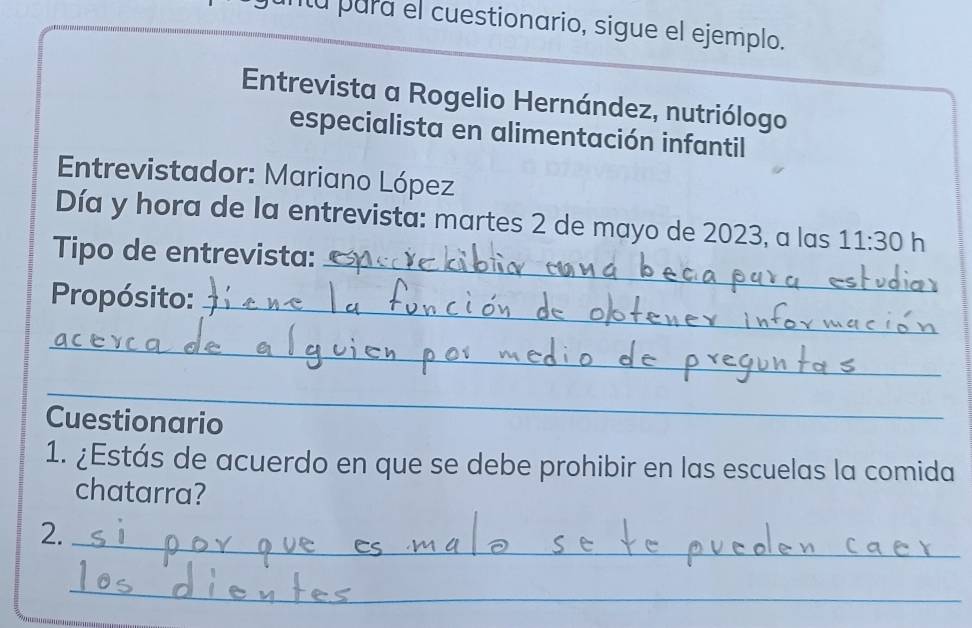 para el cuestionario, sigue el ejemplo.
Entrevista a Rogelio Hernández, nutriólogo
especialista en alimentación infantil
Entrevistador: Mariano López
Día y hora de la entrevista: martes 2 de mayo de 2023, a las 11:30 h
Tipo de entrevista: beca para estudiar
Propósito: tiene la función de obtener información
acerca de alguien por medio de preguntas
Cuestionario
1. ¿Estás de acuerdo en que se debe prohibir en las escuelas la comida
chatarra?
2. si por que es malo se te pueden caer
los dientes